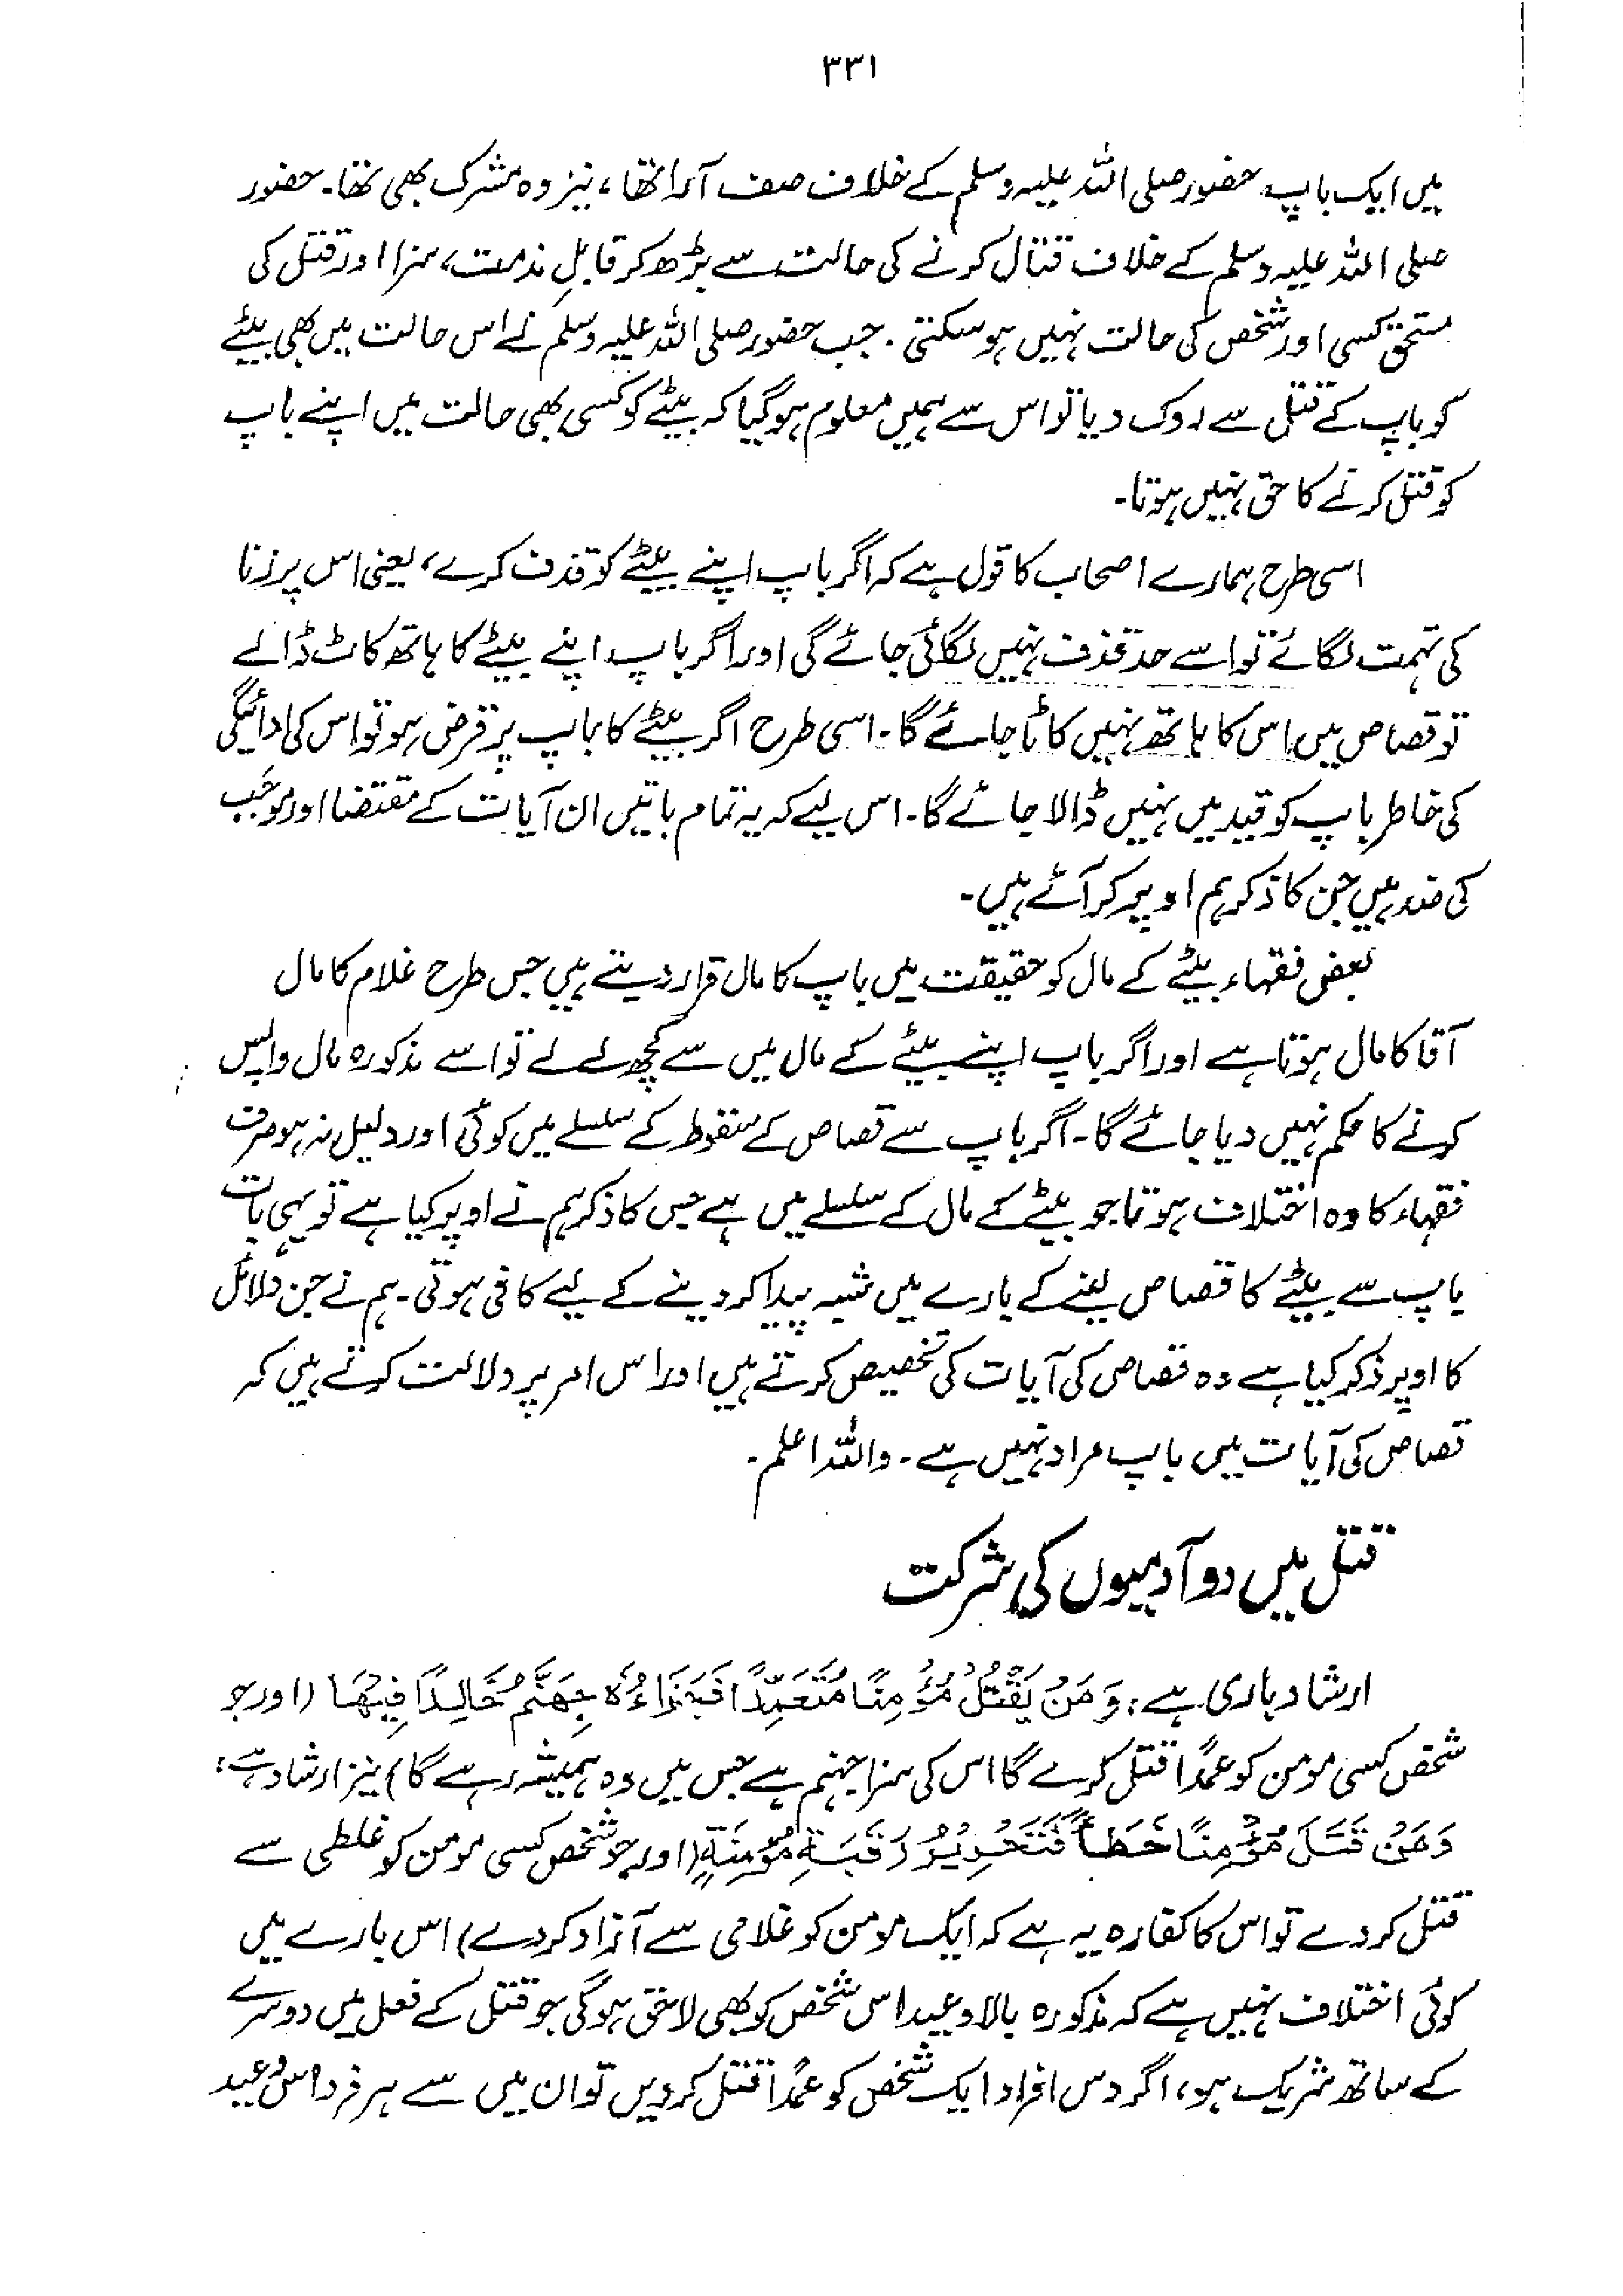 ۳۳۱
میں ایک باپ حضور صلی اللہ علیہ وسلم کے خلاف صف آرا تھا، نیز وہ مشرک بھی تھا۔ حضور
صلی اللہ علیہ وسلم کے خلاف قتال کرنے کی حالت سے بڑھ کر قابلِ مذمت، سزا اور قتل کی
مستحق کسی اور شخص کی حالت نہیں ہو سکتی۔ جب حضور صلی اللہ علیہ وسلم نے اس حالت میں بھی بیٹے
کو باپ کے قتل سے روک دیا تو اس سے ہمیں معلوم ہو گیا کہ بیٹے کو کسی بھی حالت میں اپنے باپ
کو قتل کرنے کا حق نہیں ہوتا۔
اسی طرح ہمارے اصحاب کا قول ہے کہ اگر باپ اپنے بیٹے کو قذف کرے، یعنی اس پر زنا
کی تہمت لگائے تو اسے حد قذف نہیں لگائی جائے گی اور اگر باپ اپنے بیٹے کا ہاتھ کاٹ ڈالے
تو قصاص میں اس کا ہاتھ نہیں کاٹا جائے گا۔ اسی طرح اگر بیٹے کا باپ پر قرض ہو تو اس کی ادائیگی
کی خاطر باپ کو قید میں نہیں ڈالا جائے گا۔ اس لیے کہ یہ تمام باتیں ان آیات کے مقتضا اور موجب
کی ضد ہیں جن کا ذکر ہم اوپر کر آئے ہیں۔
بعض فقہاء بیٹے کے مال کو حقیقت میں باپ کا مال قرار دیتے ہیں جس طرح غلام کا مال
آقا کا مال ہوتا ہے اور اگر باپ اپنے بیٹے کے مال میں سے کچھ لے لے تو اسے مذکورہ مال واپس
کرنے کا حکم نہیں دیا جائے گا۔ اگر باپ سے قصاص کے سقوط کے سلسلے میں کوئی اور دلیل نہ ہو صرف
فقہاء کا وہ اختلاف ہوتا جو بیٹے کے مال کے سلسلے میں ہے جس کا ذکر ہم نے اوپر کیا ہے تو یہی بات
باپ سے بیٹے کا قصاص لینے کے بارے میں شبہ پیدا کر دینے کے لیے کافی ہوتی۔ ہم نے جن دلائل
کا اوپر ذکر کیا ہے وہ قصاص کی آیات کی تخصیص کرتے ہیں اور اس امر پر دلالت کرتے ہیں کہ
قصاص کی آیات میں باپ مراد نہیں ہے۔ واللہ اعلم۔
قتل میں دو آدمیوں کی شرکت
ارشاد باری ہے: وَمَنْ یَقْتُلْ مُؤْمِنًا مُتَعَمِّدًا فَجَزَاءُہٗ جَھَنَّمُ خَالِدًا فِیْھَا (اور جو
شخص کسی مومن کو عمداً قتل کرے گا اس کی سزا جہنم ہے جس میں وہ ہمیشہ رہے گا) نیز ارشاد ہے:
وَمَنْ قَتَلَ مُؤْمِنًا خَطَأً فَتَحْرِیْرُ رَقَبَۃٍ مُؤْمِنَۃٍ (اور جو شخص کسی مومن کو غلطی سے
قتل کر دے تو اس کا کفارہ یہ ہے کہ ایک مومن کو غلامی سے آزاد کر دے) اس بارے میں
کوئی اختلاف نہیں ہے کہ مذکورہ بالا وعید اس شخص کو بھی لاحق ہوگی جو قتل کے فعل میں دوسرے
کے ساتھ شریک ہو، اگر دس افراد ایک شخص کو عمداً قتل کر دیں تو ان میں سے ہر فرد اس وعید